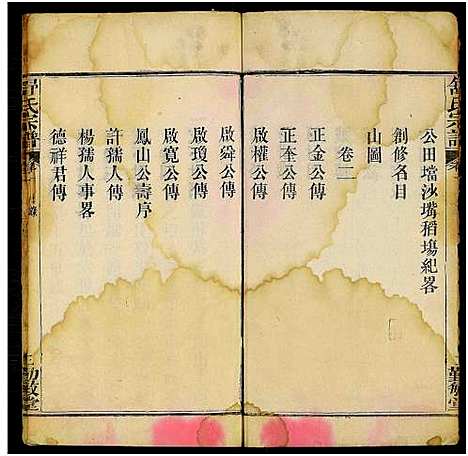 公田壋沙嘴稻塲紀畧
創修名目
山圖
卷二
正金公傳
正奎公傳
啟權公傳
啟舜公傳
啟瓊公傳
啟寬公傳
鳳山公壽序
許孺人傳
楊孺人事畧
德祥君傳
舒氏宗譜